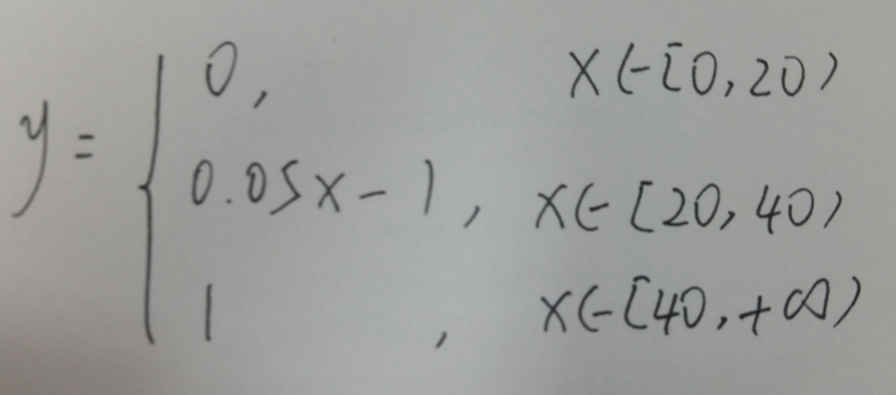 0, x∈[0,20)
y= { 0.05x-1, x∈[20,40)
1 , x∈[40,+∞)